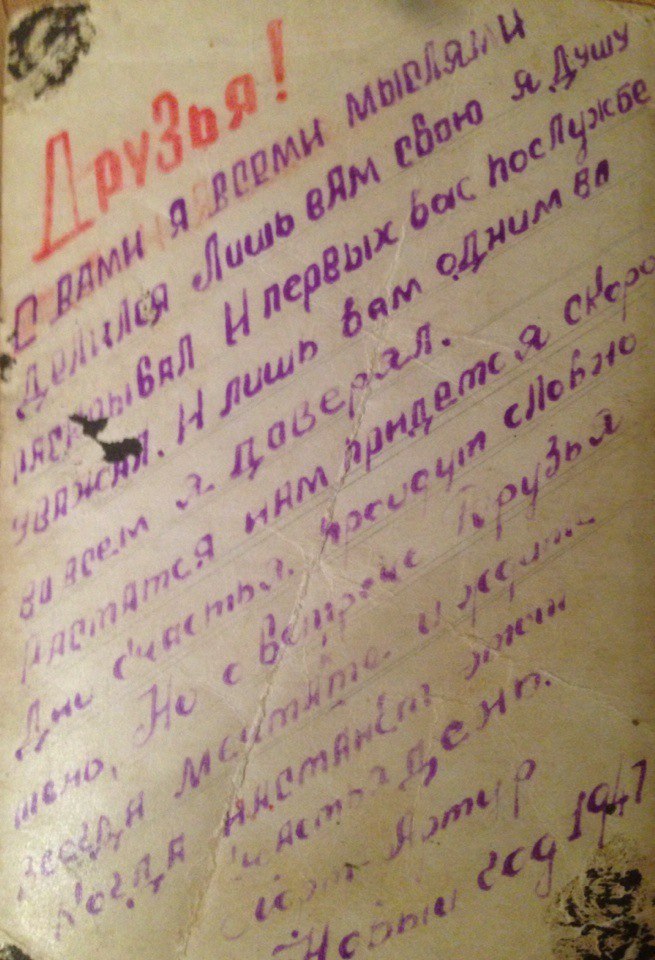 Друзья!
С вами я всеми мыслями
делился Лишь вам свою я душу
раскрывал И первых вас послужбе
уважал. И лишь вам одним во
во всем я доверял.
Растатся нам придется скоро
Дни счастья пройдут словно
Но о встрече Друзья
всегда мечтайте и ждите
Когда настанет этот
счастья день.
Артур
Новый год 1947